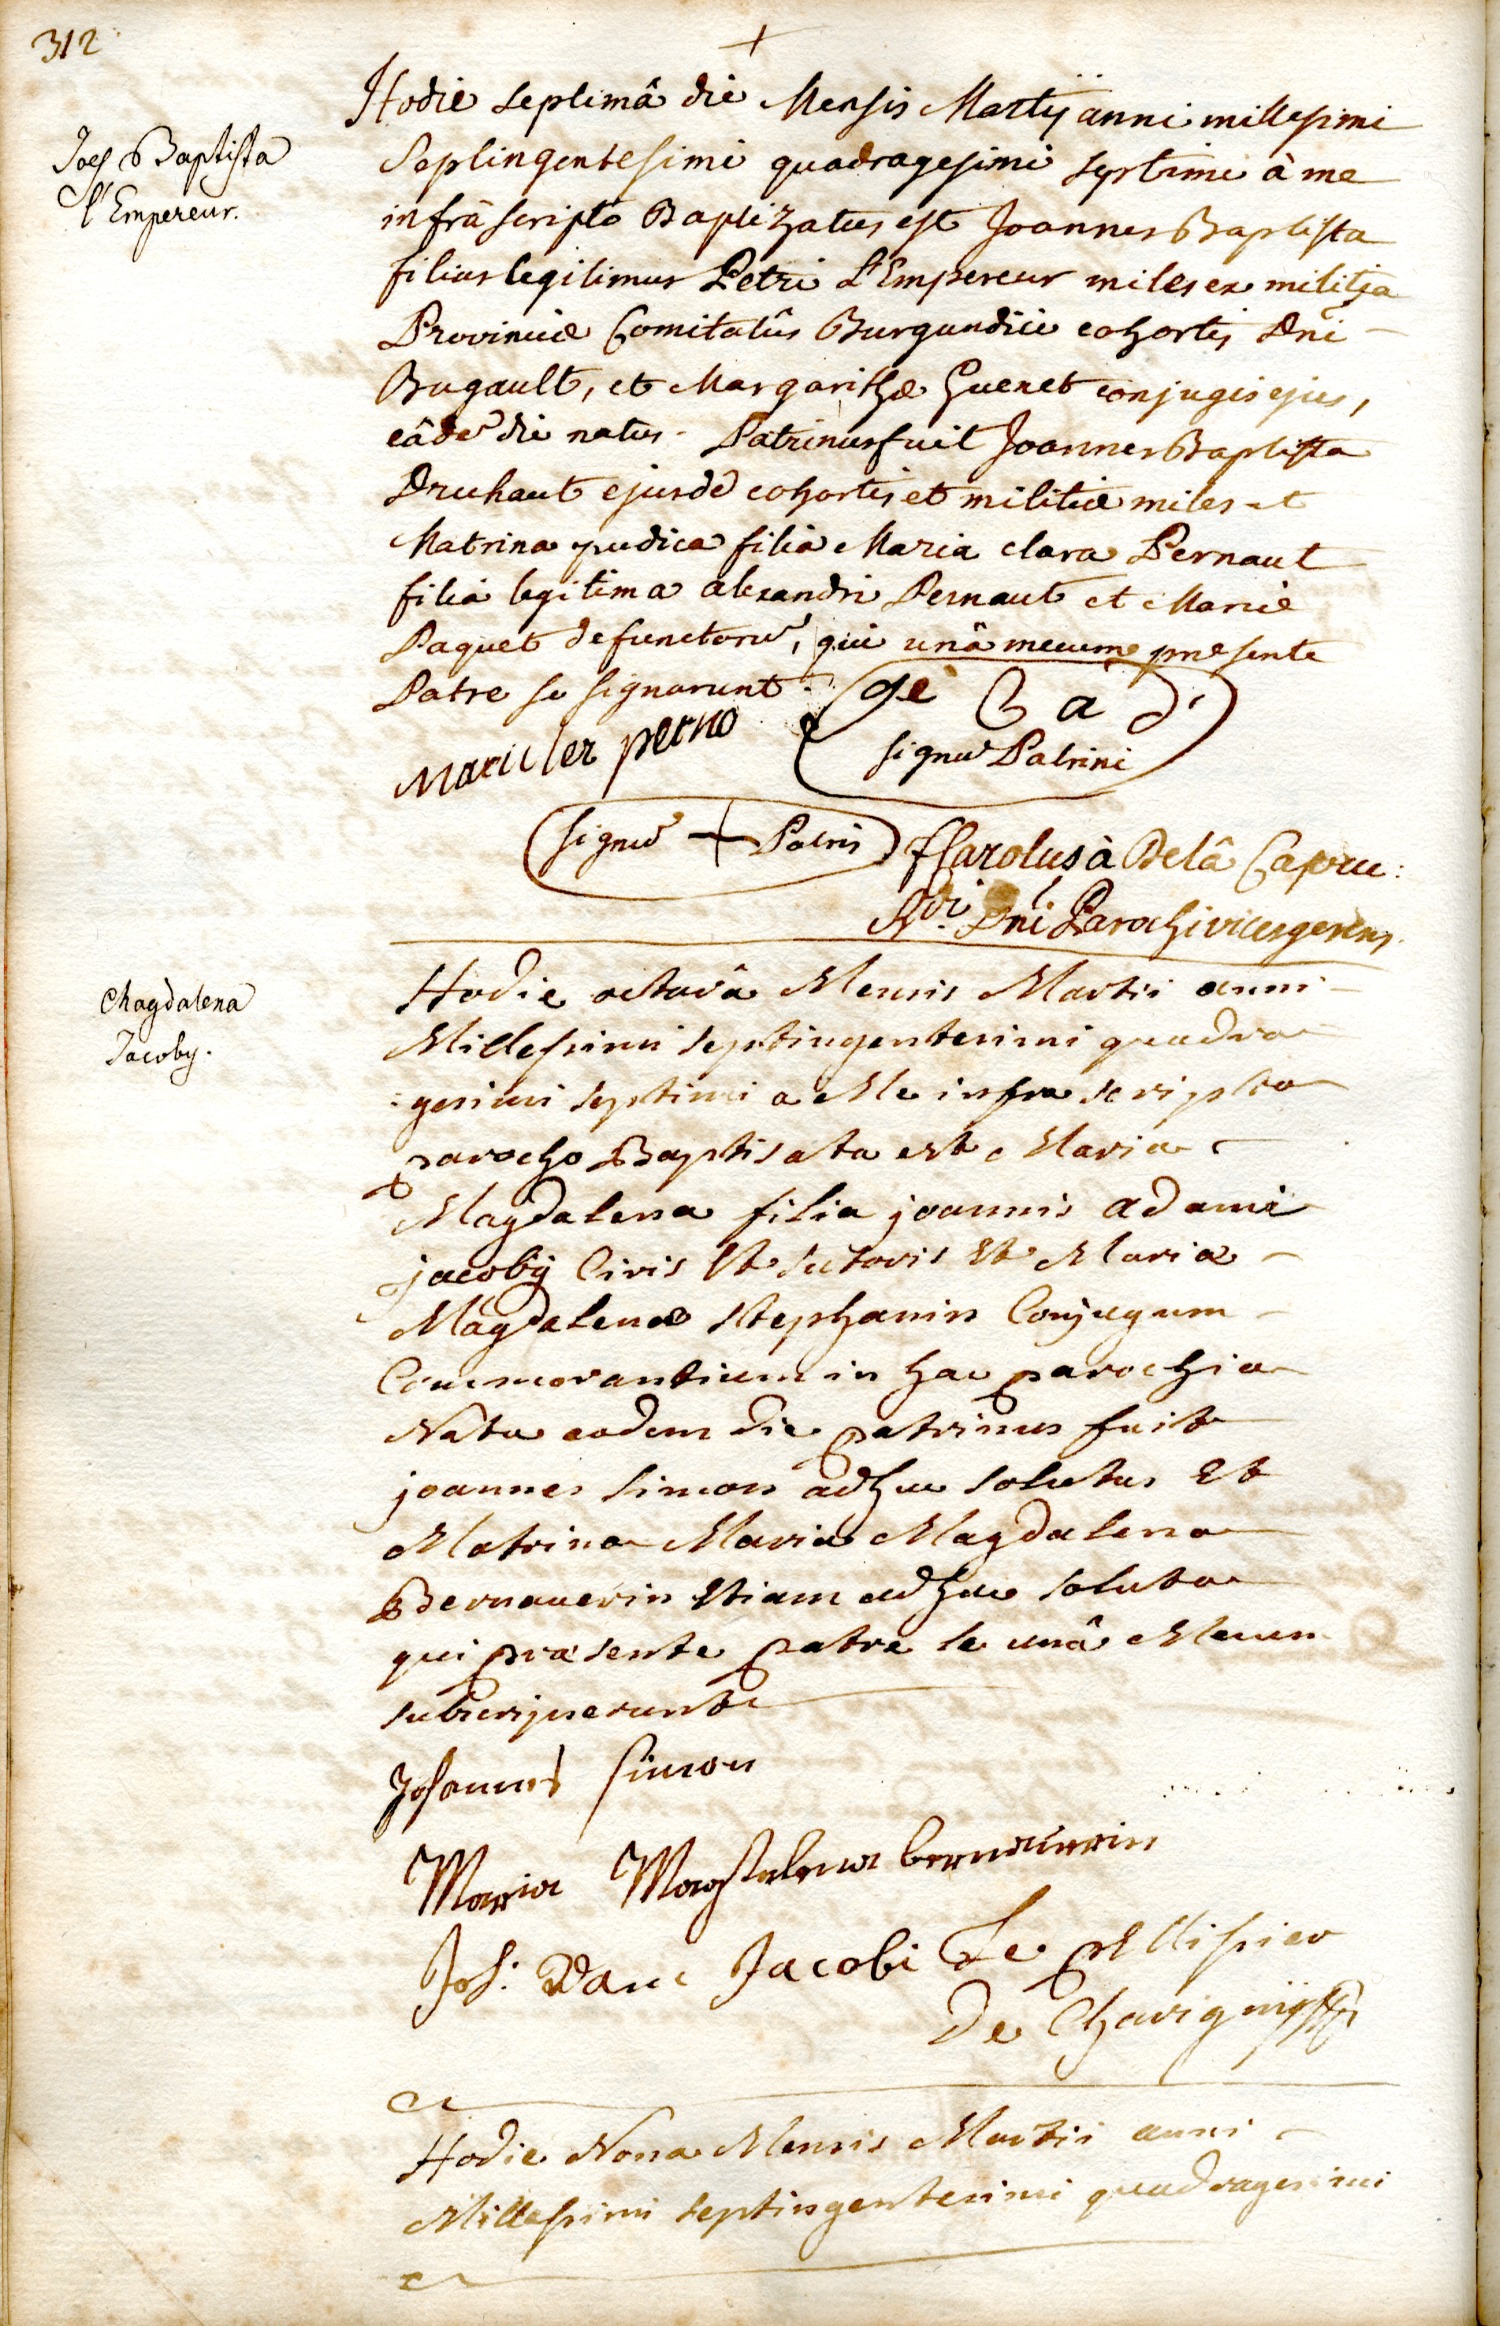 312
+
Joes Baptista
l'Empereur.
Hodie septimâ die Mensis Martij anni millesimi
Septingentesimi quadragesimi septimi à me
infrà scripto Baptizatus est Joannes Baptista
filius legitimus Petri L'Empereur miles ex militia
Provinciæ Comitatûs Burgundiæ cohortis Dni
Bugault, et Margarithæ Guenet conjugis ejus,
eâdē die natus. Patrinus fuit Joannes Baptista
Druhaut ejusdē cohortis et militiæ miles et
Matrina pudica filia Maria clara Pernaut
filia legitima alexandri Pernaut et Mariæ
Paquet defunctorū, qui unâ mecum præsente
Patre se signarunt.
signū Patrini
signū + Patris
f Carolus à Belâ Capuc:
Rdi Dni Parochi vicesgerens
Magdalena
Jacoby.
Hodie octavâ Mensis Martii anni
Millesimi septingentesimi quadra
gesimi septimi a Me infra scripto
parocho Baptisata est Maria
Magdalena filia joannis adami
jacobÿ Civis Et sutoris Et Maria
Magdalenæ stephanin Conjugum
Commorantium in hac parochia
Nata eadem die patrinus fuit
joannes simon adhuc solutus Et
Matrina Maria Magdalena
Bernauerin Etiam adhuc soluta
qui præsente patre se unâ Mecum
subscripserunt
Johannes Simon
Maria Magdalena bernauerin
Joh: Dam Jacobi Le pellissier
De Chavignÿ
Hodie Nona Mensis Martii anni
Millesimi septingentesimi quadragesimi